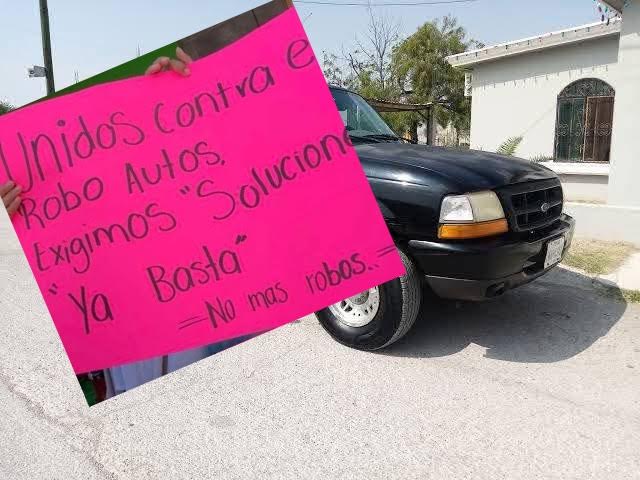 Unidos contra e
Robo Autos.
Exigimos "Solucion
"Ya Basta"
=No mas robos..=
Ford